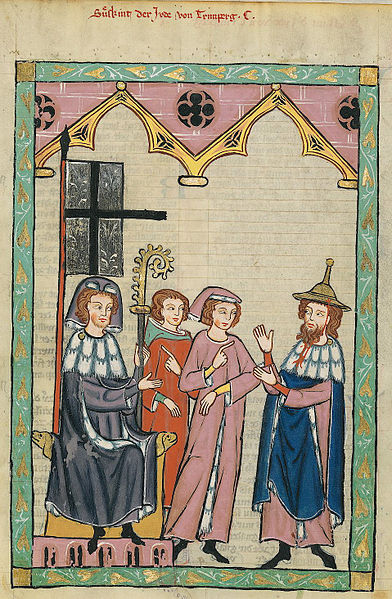 Suͤskint der Jvde von Trimperg. C.